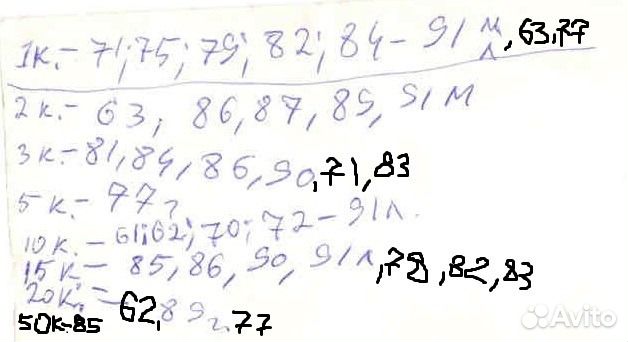 1к.- 71; 75; 79; 82; 84 - 91 м л, 63, 77
2к.- 63, 86, 87, 89, 91м
3к.- 81, 84, 86, 90, 71, 83
5к.- 77г
10к.- 61; 62; 70; 72 - 91л.
15к - 85, 86, 90, 91л, 78, 82, 83
20к. - 62, 89г, 77
50к-85
Avito